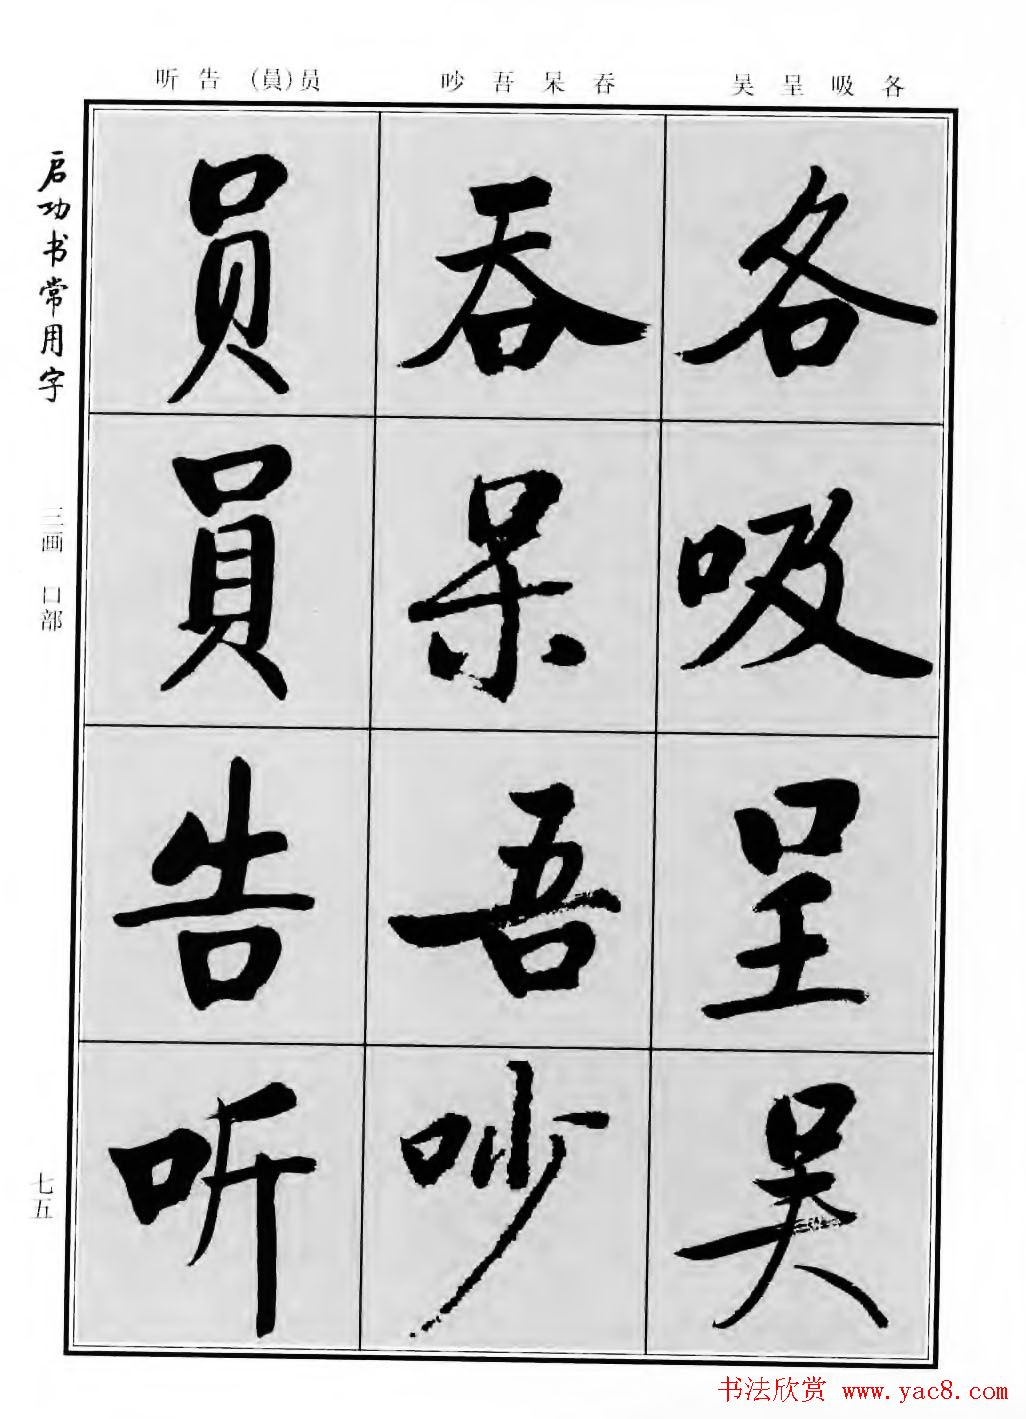 听告(員)员 吵吾呆吞 吴呈吸各
启功书常用字
三画 口部
七五
各
吸
呈
吴
吞
呆
吾
吵
员
員
告
听
书法欣赏 www.yac8.com